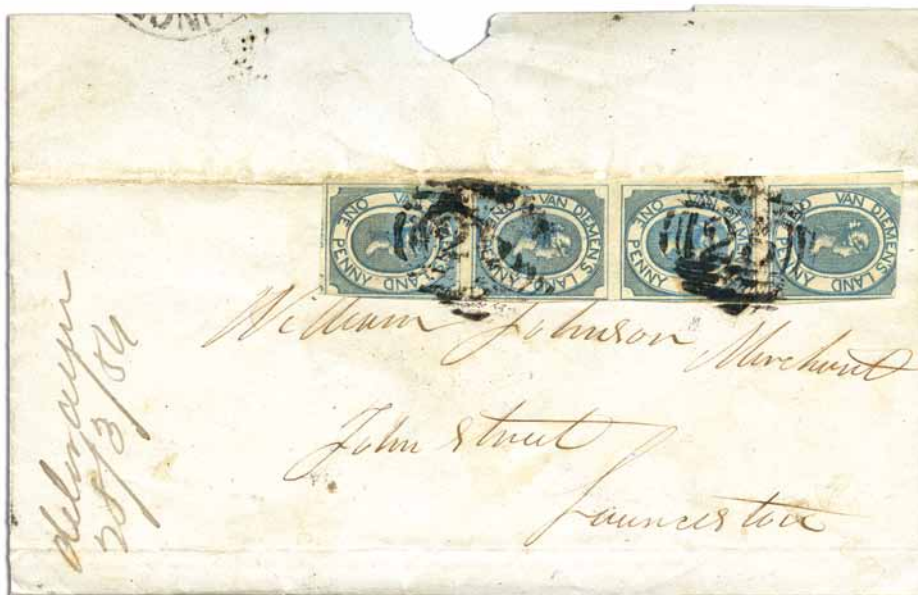 VAN DIEMEN'S LAND ONE PENNY
VAN DIEMEN'S LAND ONE PENNY
VAN DIEMEN'S LAND ONE PENNY
VAN DIEMEN'S LAND ONE PENNY
William Johnson Merchant
John Street
Launceston
20/3/54